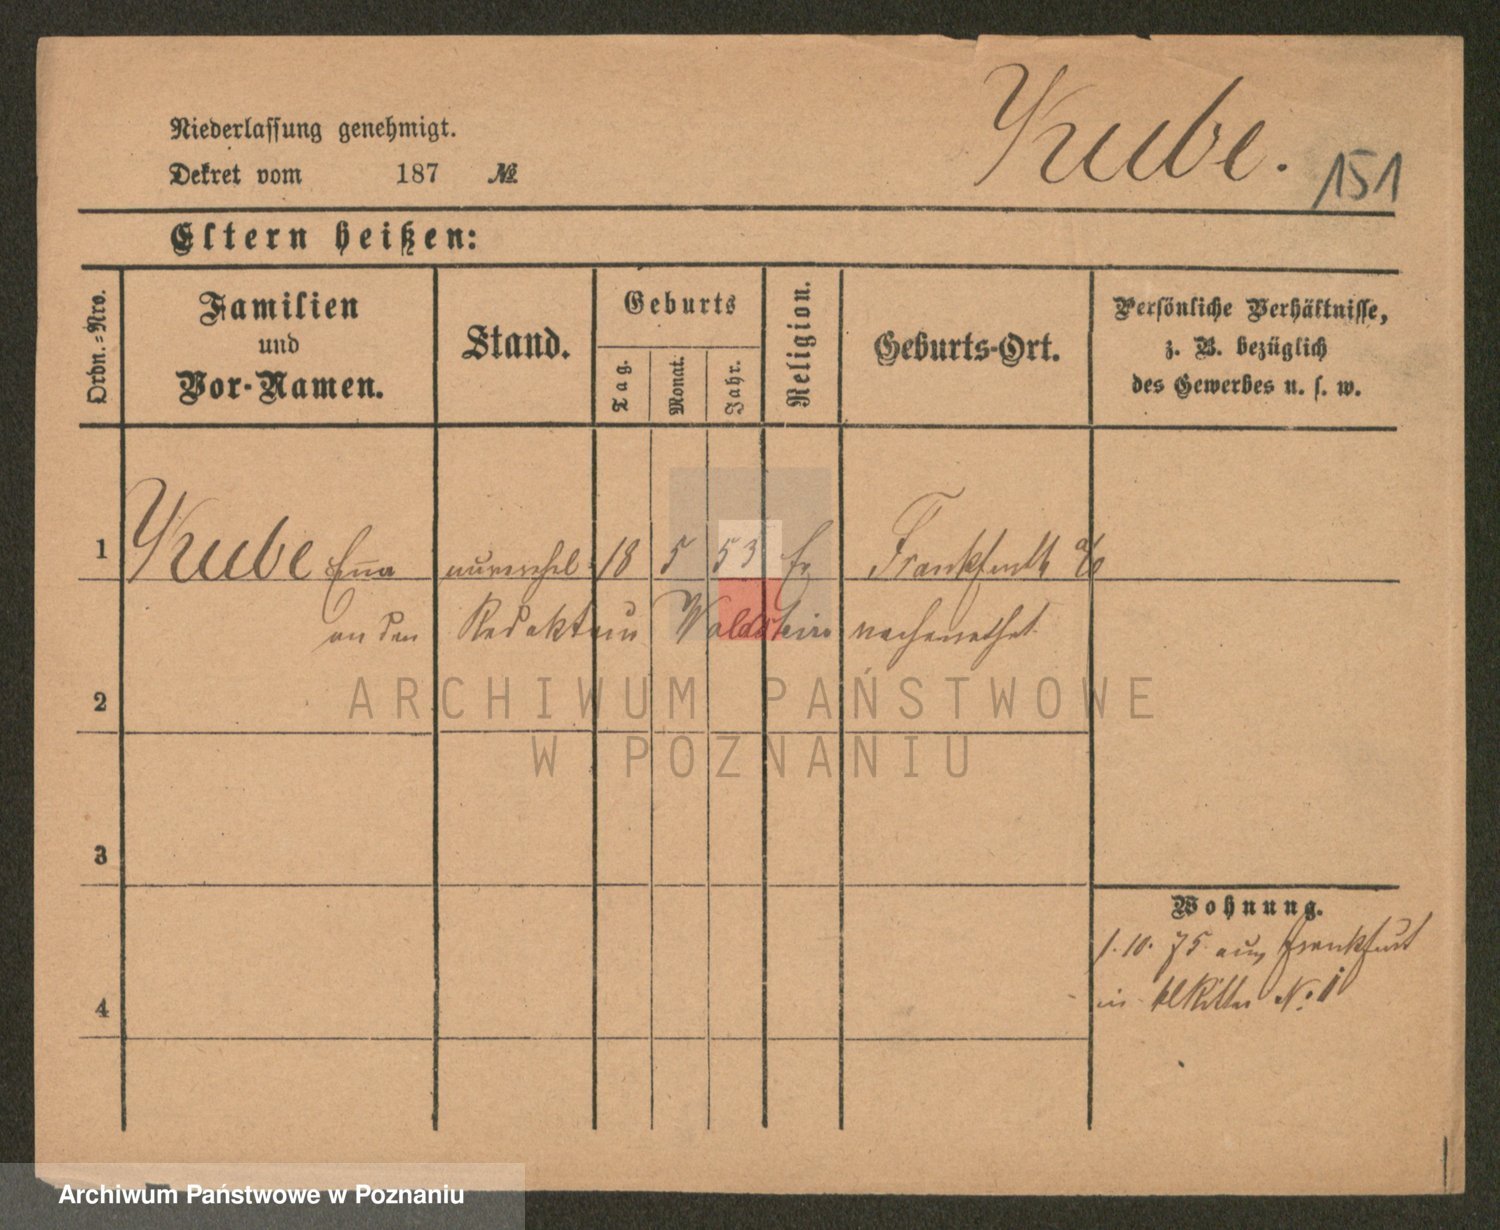 Niederlassung genehmigt.
Kube.
151
Dekret vom 187 №
Eltern heißen:
Ordn.-Nro.
Familien
und
Vor-Namen.
Stand.
Geburts
Tag.
Monat.
Jahr.
Religion.
Geburts-Ort.
Persönliche Verhältnisse,
z. B. bezüglich
des Gewerbes u. s. w.
1 Kube 18 5 53 Ev Frankfurth a/O
an den Redakteur Waldstein
2
ARCHIWUM PAŃSTWOWE
W POZNANIU
3
4
Wohnung.
1. 10. 75 aus Frankfurt
in klRitter N: 1
Archiwum Państwowe w Poznaniu